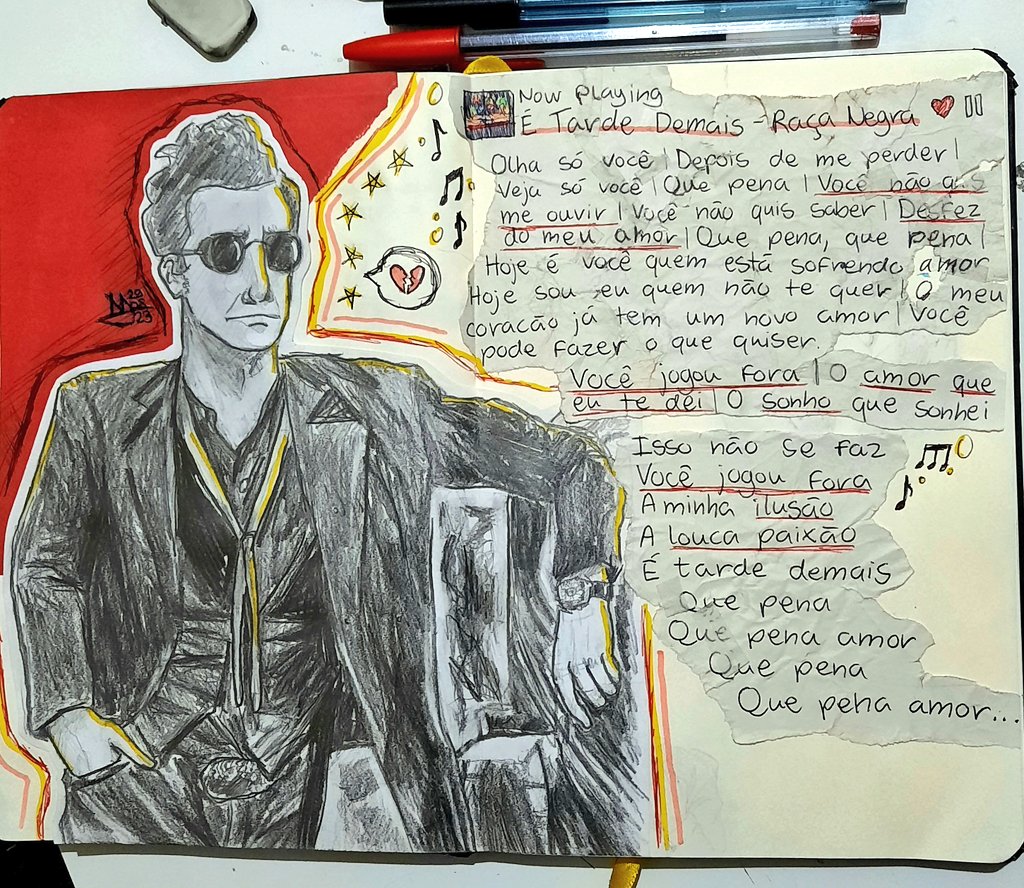 Now Playing
É Tarde Demais - Raça Negra
Olha só você | Depois de me perder |
Veja só você | Que pena | Você não quis
me ouvir | Você não quis saber | Desfez
do meu amor | Que pena, que pena |
Hoje é você quem está sofrendo amor
Hoje sou eu quem não te quer | O meu
coracão já tem um novo amor | Você
pode fazer o que quiser.
Você jogou fora | O amor que
eu te dei | O sonho que sonhei
Isso não se faz
Você jogou fora
A minha ilusão
A louca paixão
É tarde demais
Que pena
Que pena amor
Que pena
Que pena amor...